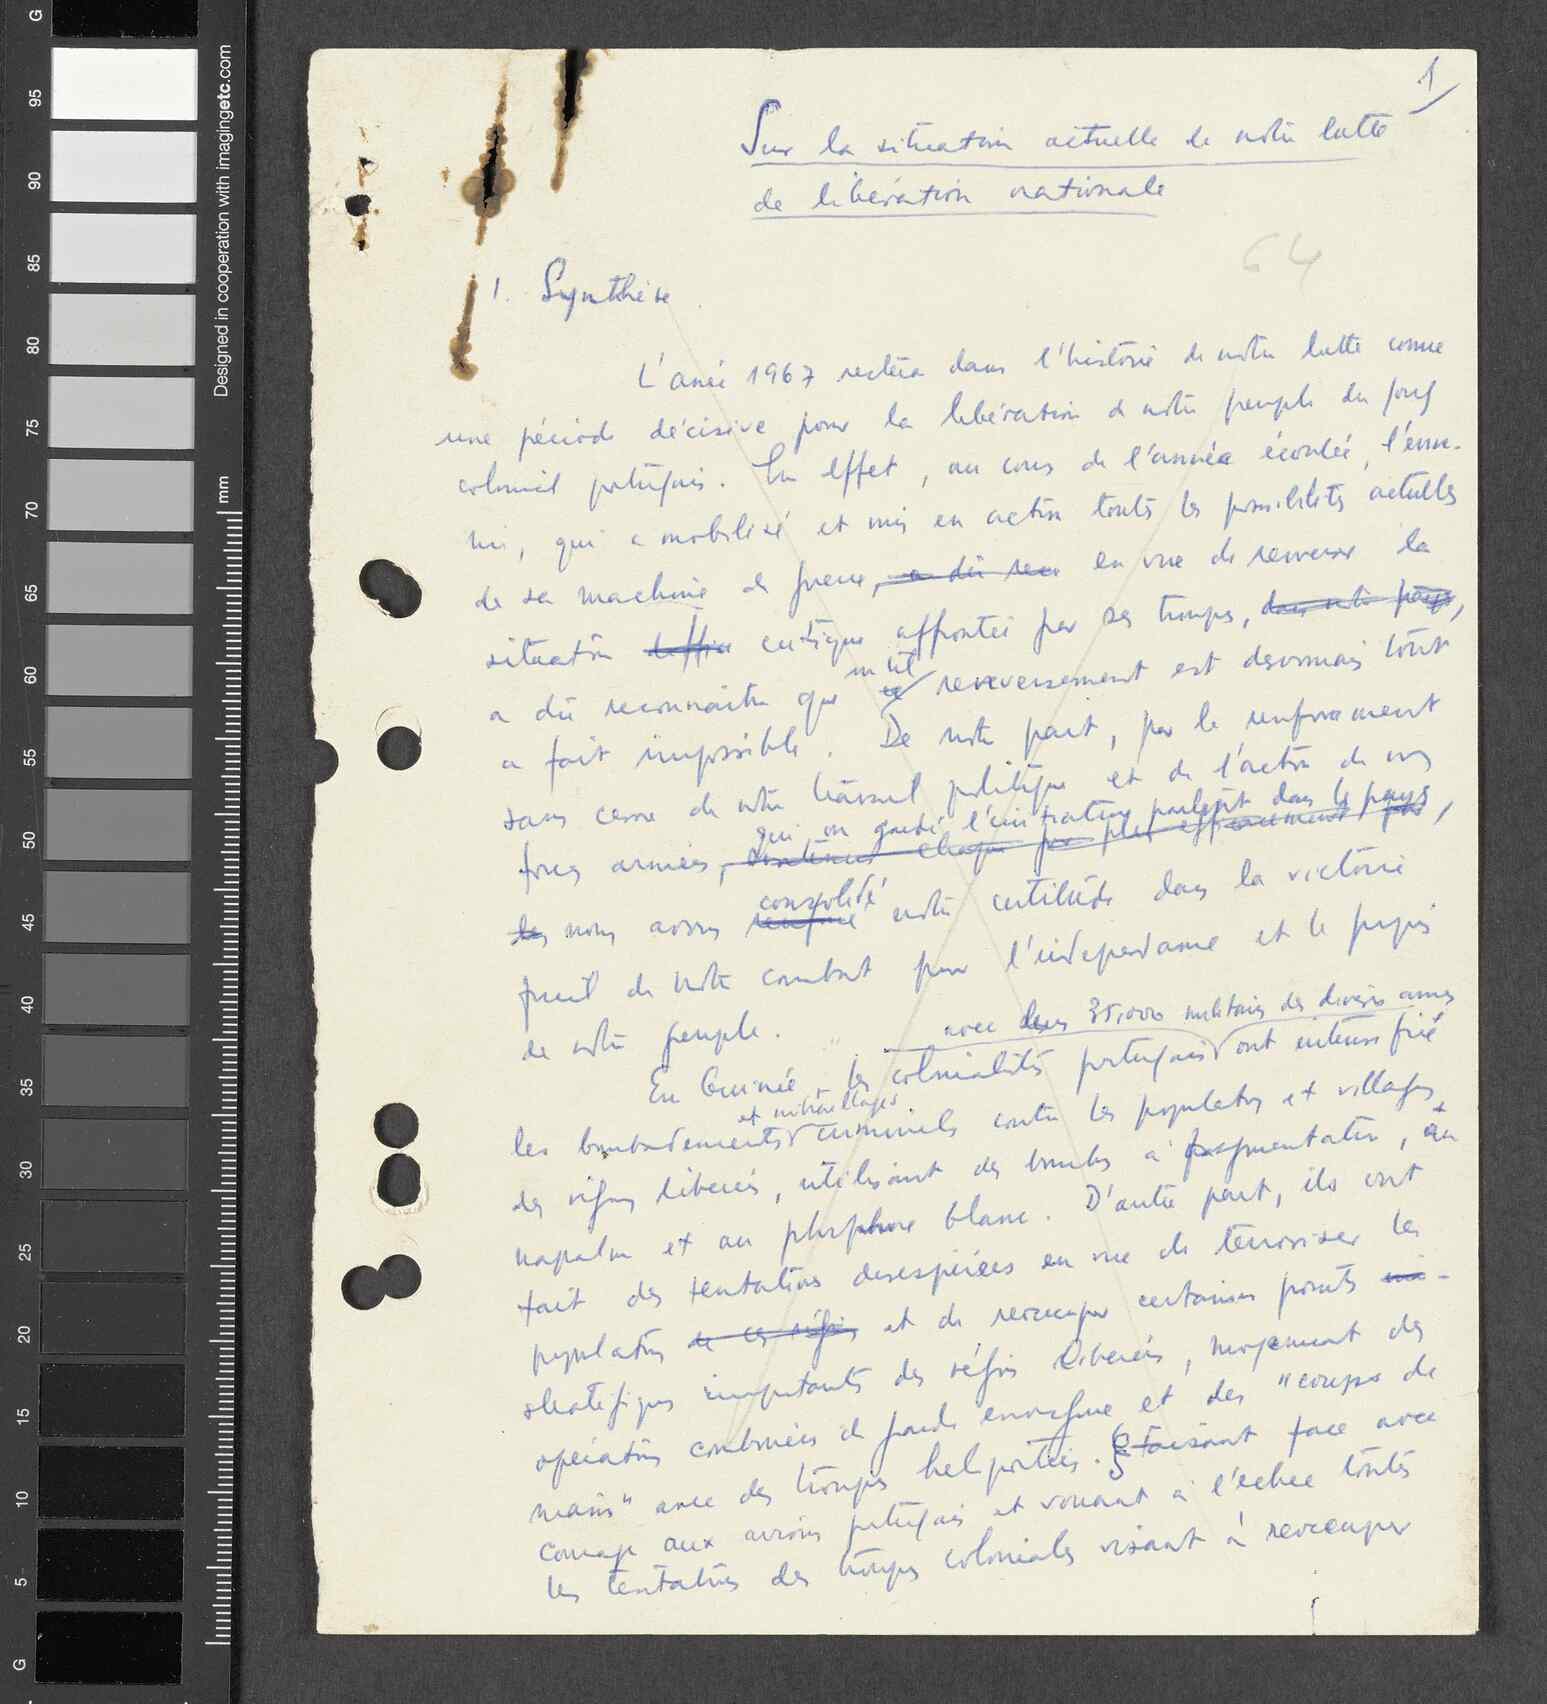 1
Sur la situation actuelle de notre lutte
de libération nationale
64
1. Synthèse
L'année 1967 restera dans l'histoire de notre lutte comme
une période décisive pour la libération de notre peuple du joug
colonial portugais. En effet, au cours de l'année écoulée, l'enne-
mi, qui a mobilisé et mis en action toutes les possibilités actuelles
de sa machine de guerre, a dû ren en vue de renverser la
situation critique affrontée par ses troupes, dans notre pays,
a dû reconnaitre que un tel renversement est desormais tout
a fait impossible. De notre part, par le renforcement
sans cesse de notre travail politique et de l'action de nos
forces armées, qui on gardé l'initiative partout dans le pays,
les nous avons renforcé consolidé notre certitude dans la victoire
final de notre combat pour l'independance et le progrès
de notre peuple.
avec leurs 35.000 militaires des diverses armes
En Guinée, les colonialistes portugais ont intensifié
et mitraillages
les bombardements criminels contre les populations et villages
des régions liberées, utilisant des bombes à fragmentation, au
napalm et au phosphore blanc. D'autre part, ils ont
fait des tentatives desespérées en vue de terroriser les
populations de ces régions et de reoccuper certaines points
stratégiques importants des régions liberées, moyennant des
opérations combinées de grande envergure et des "coups de
mains" avec des troupes heliportées. Faisant face avec
courage aux avions portugais et vouant à l'échec toutes
les tentatives des troupes coloniales visant à reoccuper
G
95
90
85
80
75
70
65
60
55
50
45
40
35
30
25
20
15
10
5
G
mm
Designed in cooperation with imagingetc.com